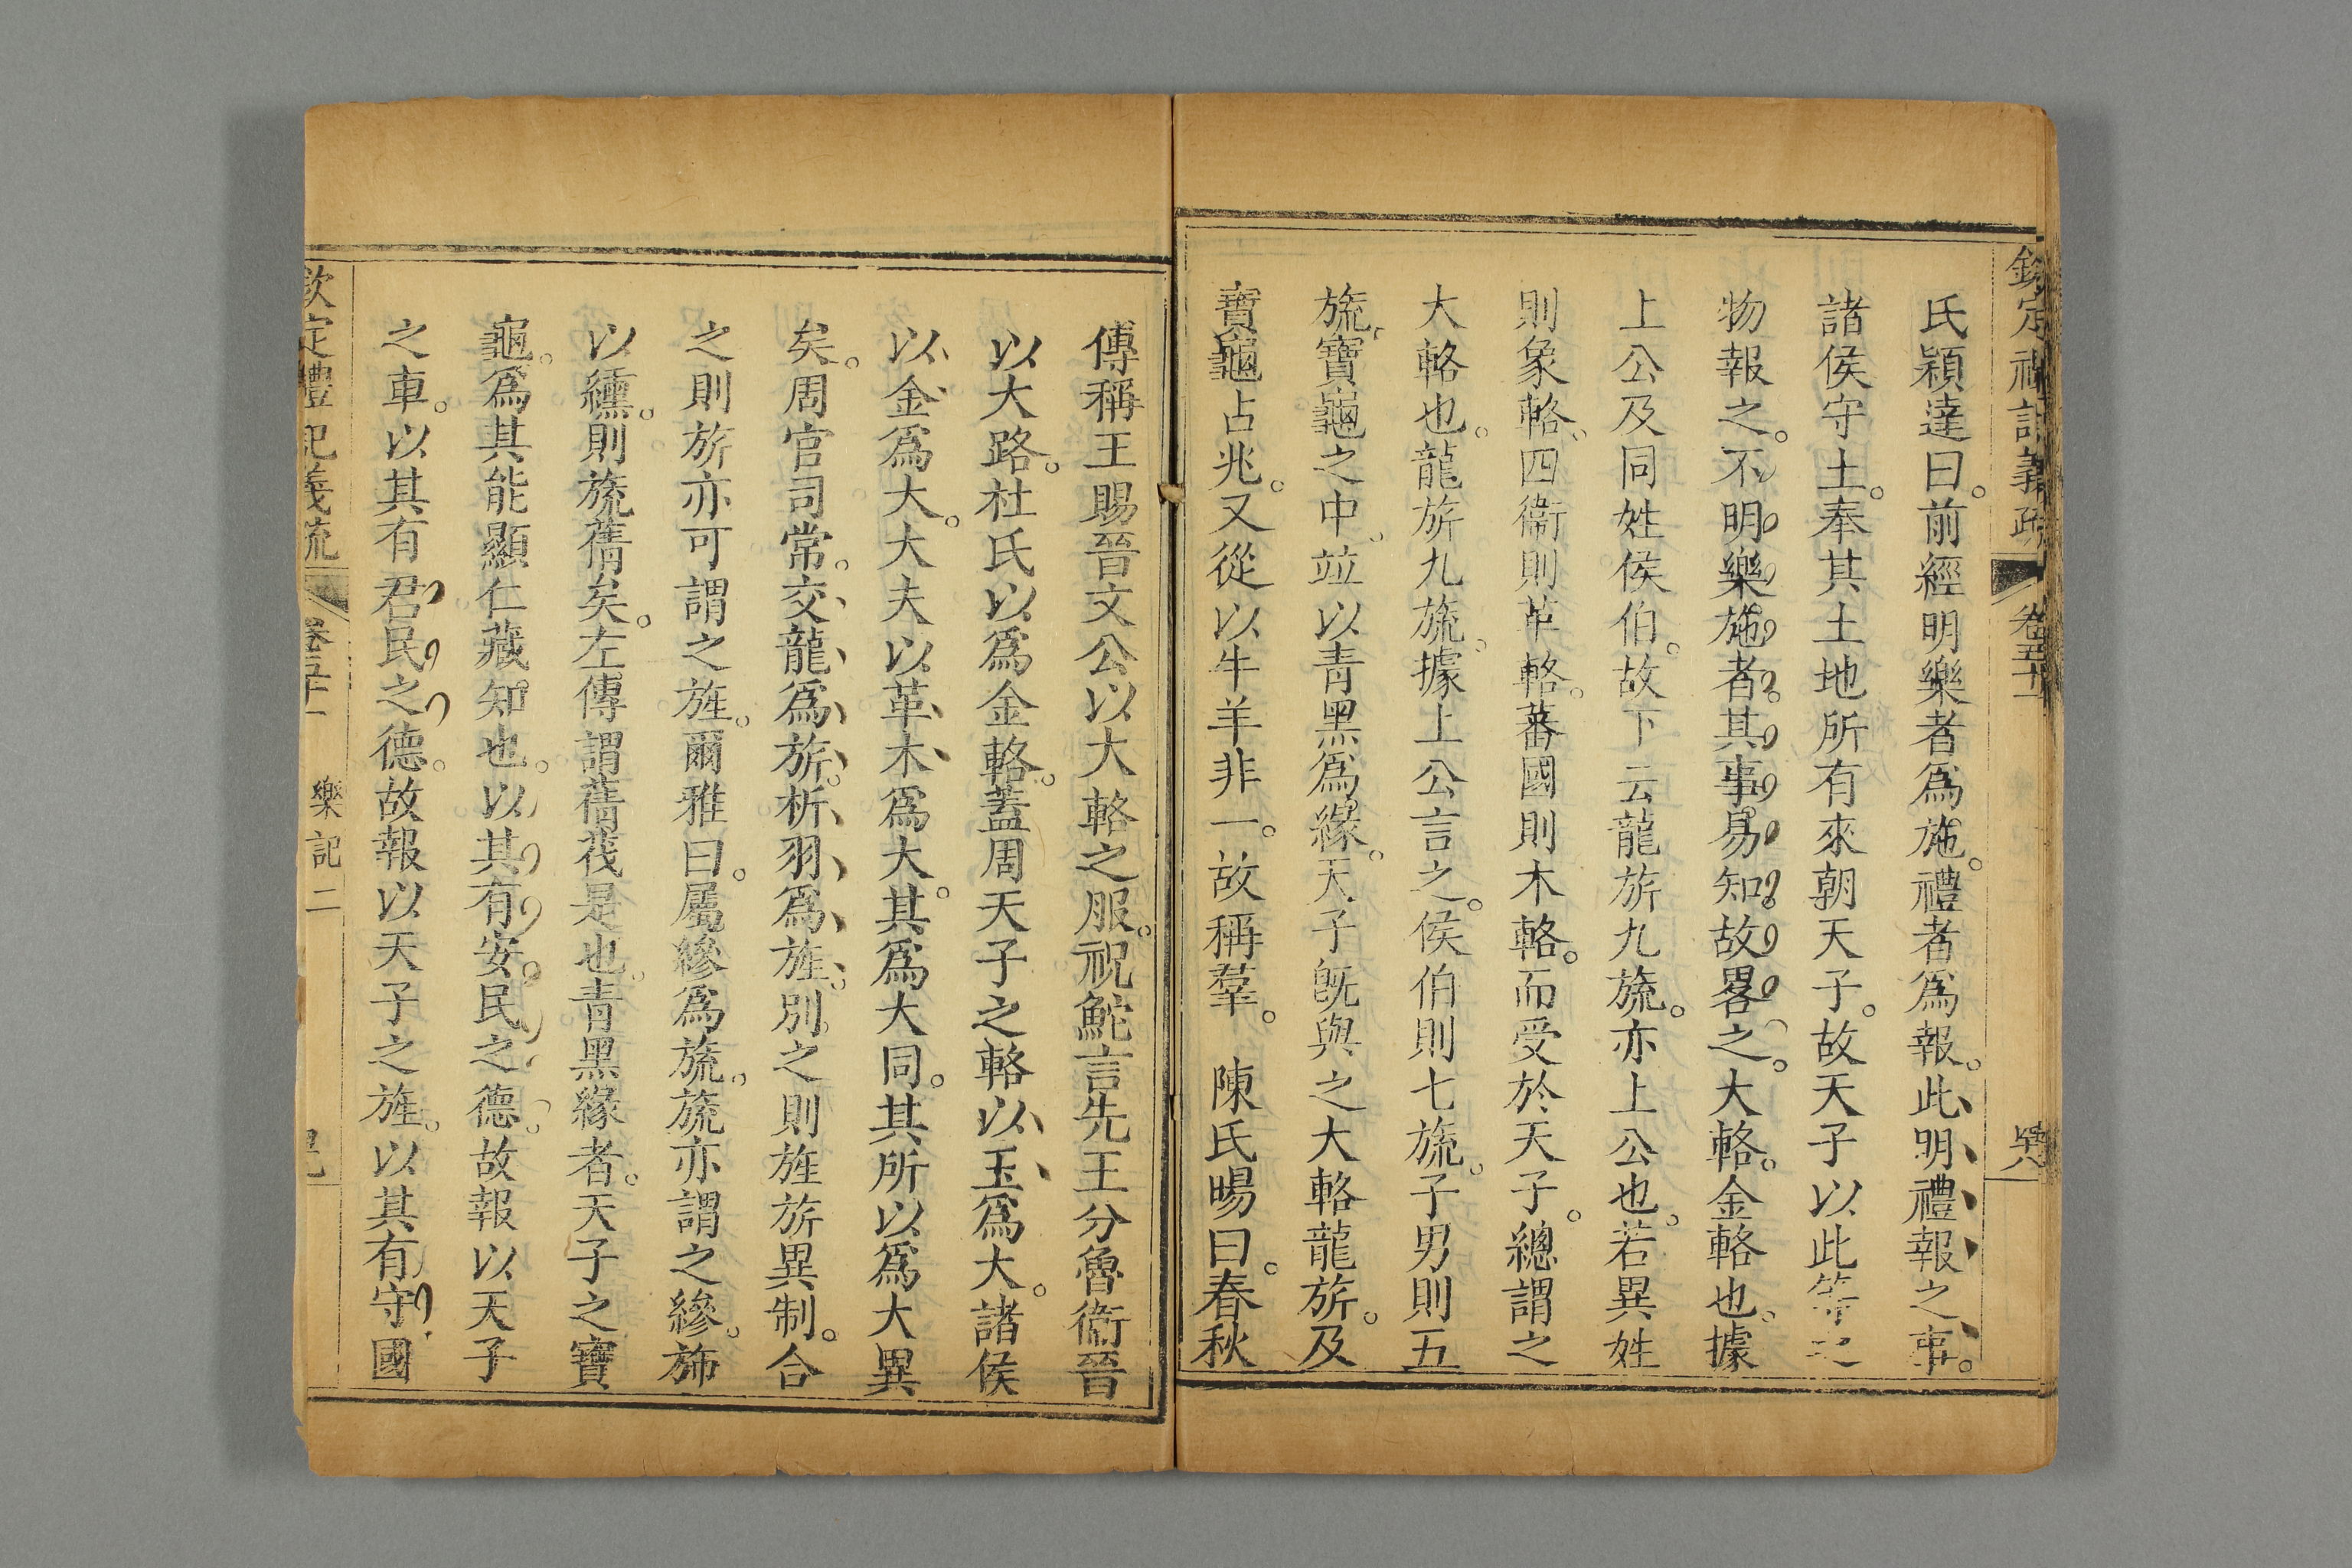 欽定禮記義疏 卷五十一 哭
氏穎達曰。前經明樂者為施。禮者為報。此明禮報之事。
諸侯守土。奉其土地所有來朝天子。故天子以此等之
物報之。不明樂施者。其事易知。故畧之。大輅。金輅也。據
上公及同姓侯伯。故下云龍旂九旒。亦上公也。若異姓
則象輅。四衞則革輅。蕃國則木輅。而受於天子。總謂之
大輅也。龍旂九旒。據上公言之。侯伯則七旒。子男則五
旒。寶龜之中。竝以青黑為緣。天子旣與之大輅龍旂。及
寶龜占兆。又從以牛羊非一。故稱羣。 陳氏暘曰。春秋
傳稱王賜晉文公以大輅之服。祝鮀言先王分魯衞晉
以大路。杜氏以為金輅。蓋周天子之輅以玉為大。諸侯
以金為大。大夫以革木為大。其為大同。其所以為大異
矣。周官司常。交龍為旂。析羽為旌。別之則旌旂異制。合
之則旂亦可謂之旌。爾雅曰。屬縿為旒。旒亦謂之縿。斾
以纁。則旒蒨矣。左傳謂蒨茷是也。青黑緣者。天子之寶
龜。為其能顯仁藏知也。以其有安民之德。故報以天子
之車。以其有君民之德。故報以天子之旌。以其有守國
欽定禮記義疏 卷五十一 樂記二